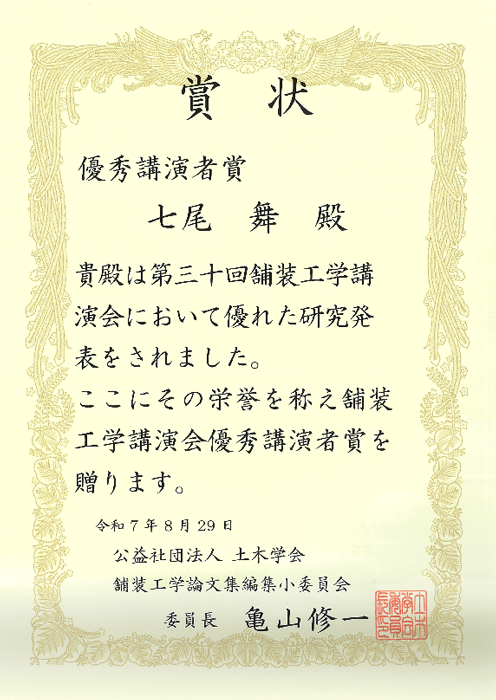 賞 状
優秀講演者賞
七尾 舞 殿
貴殿は第三十回舗装工学講
演会において優れた研究発
表をされました。
ここにその栄誉を称え舗装
工学講演会優秀講演者賞を
贈ります。
令和7年8月29日
公益社団法人 土木学会
舗装工学論文集編集小委員会
委員長 亀山修一